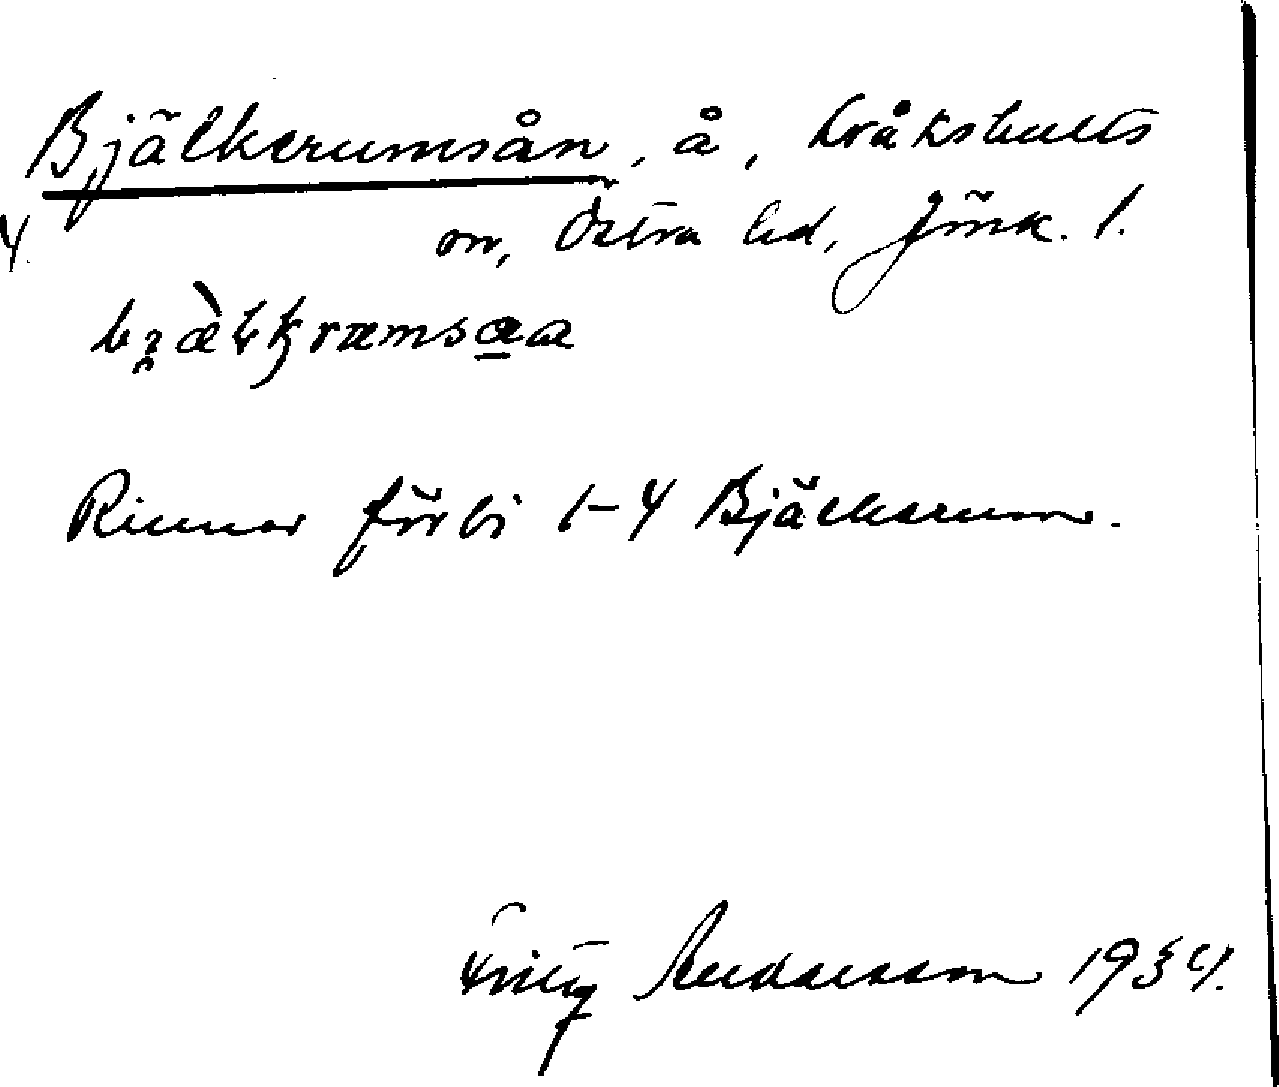 Bjälkerumsån, å, Kråkshults
sn, Östra hd, Jönk. l.
4.
Rinner förbi 1-4 Bjälkerum.
Fritz Andersson 1934.